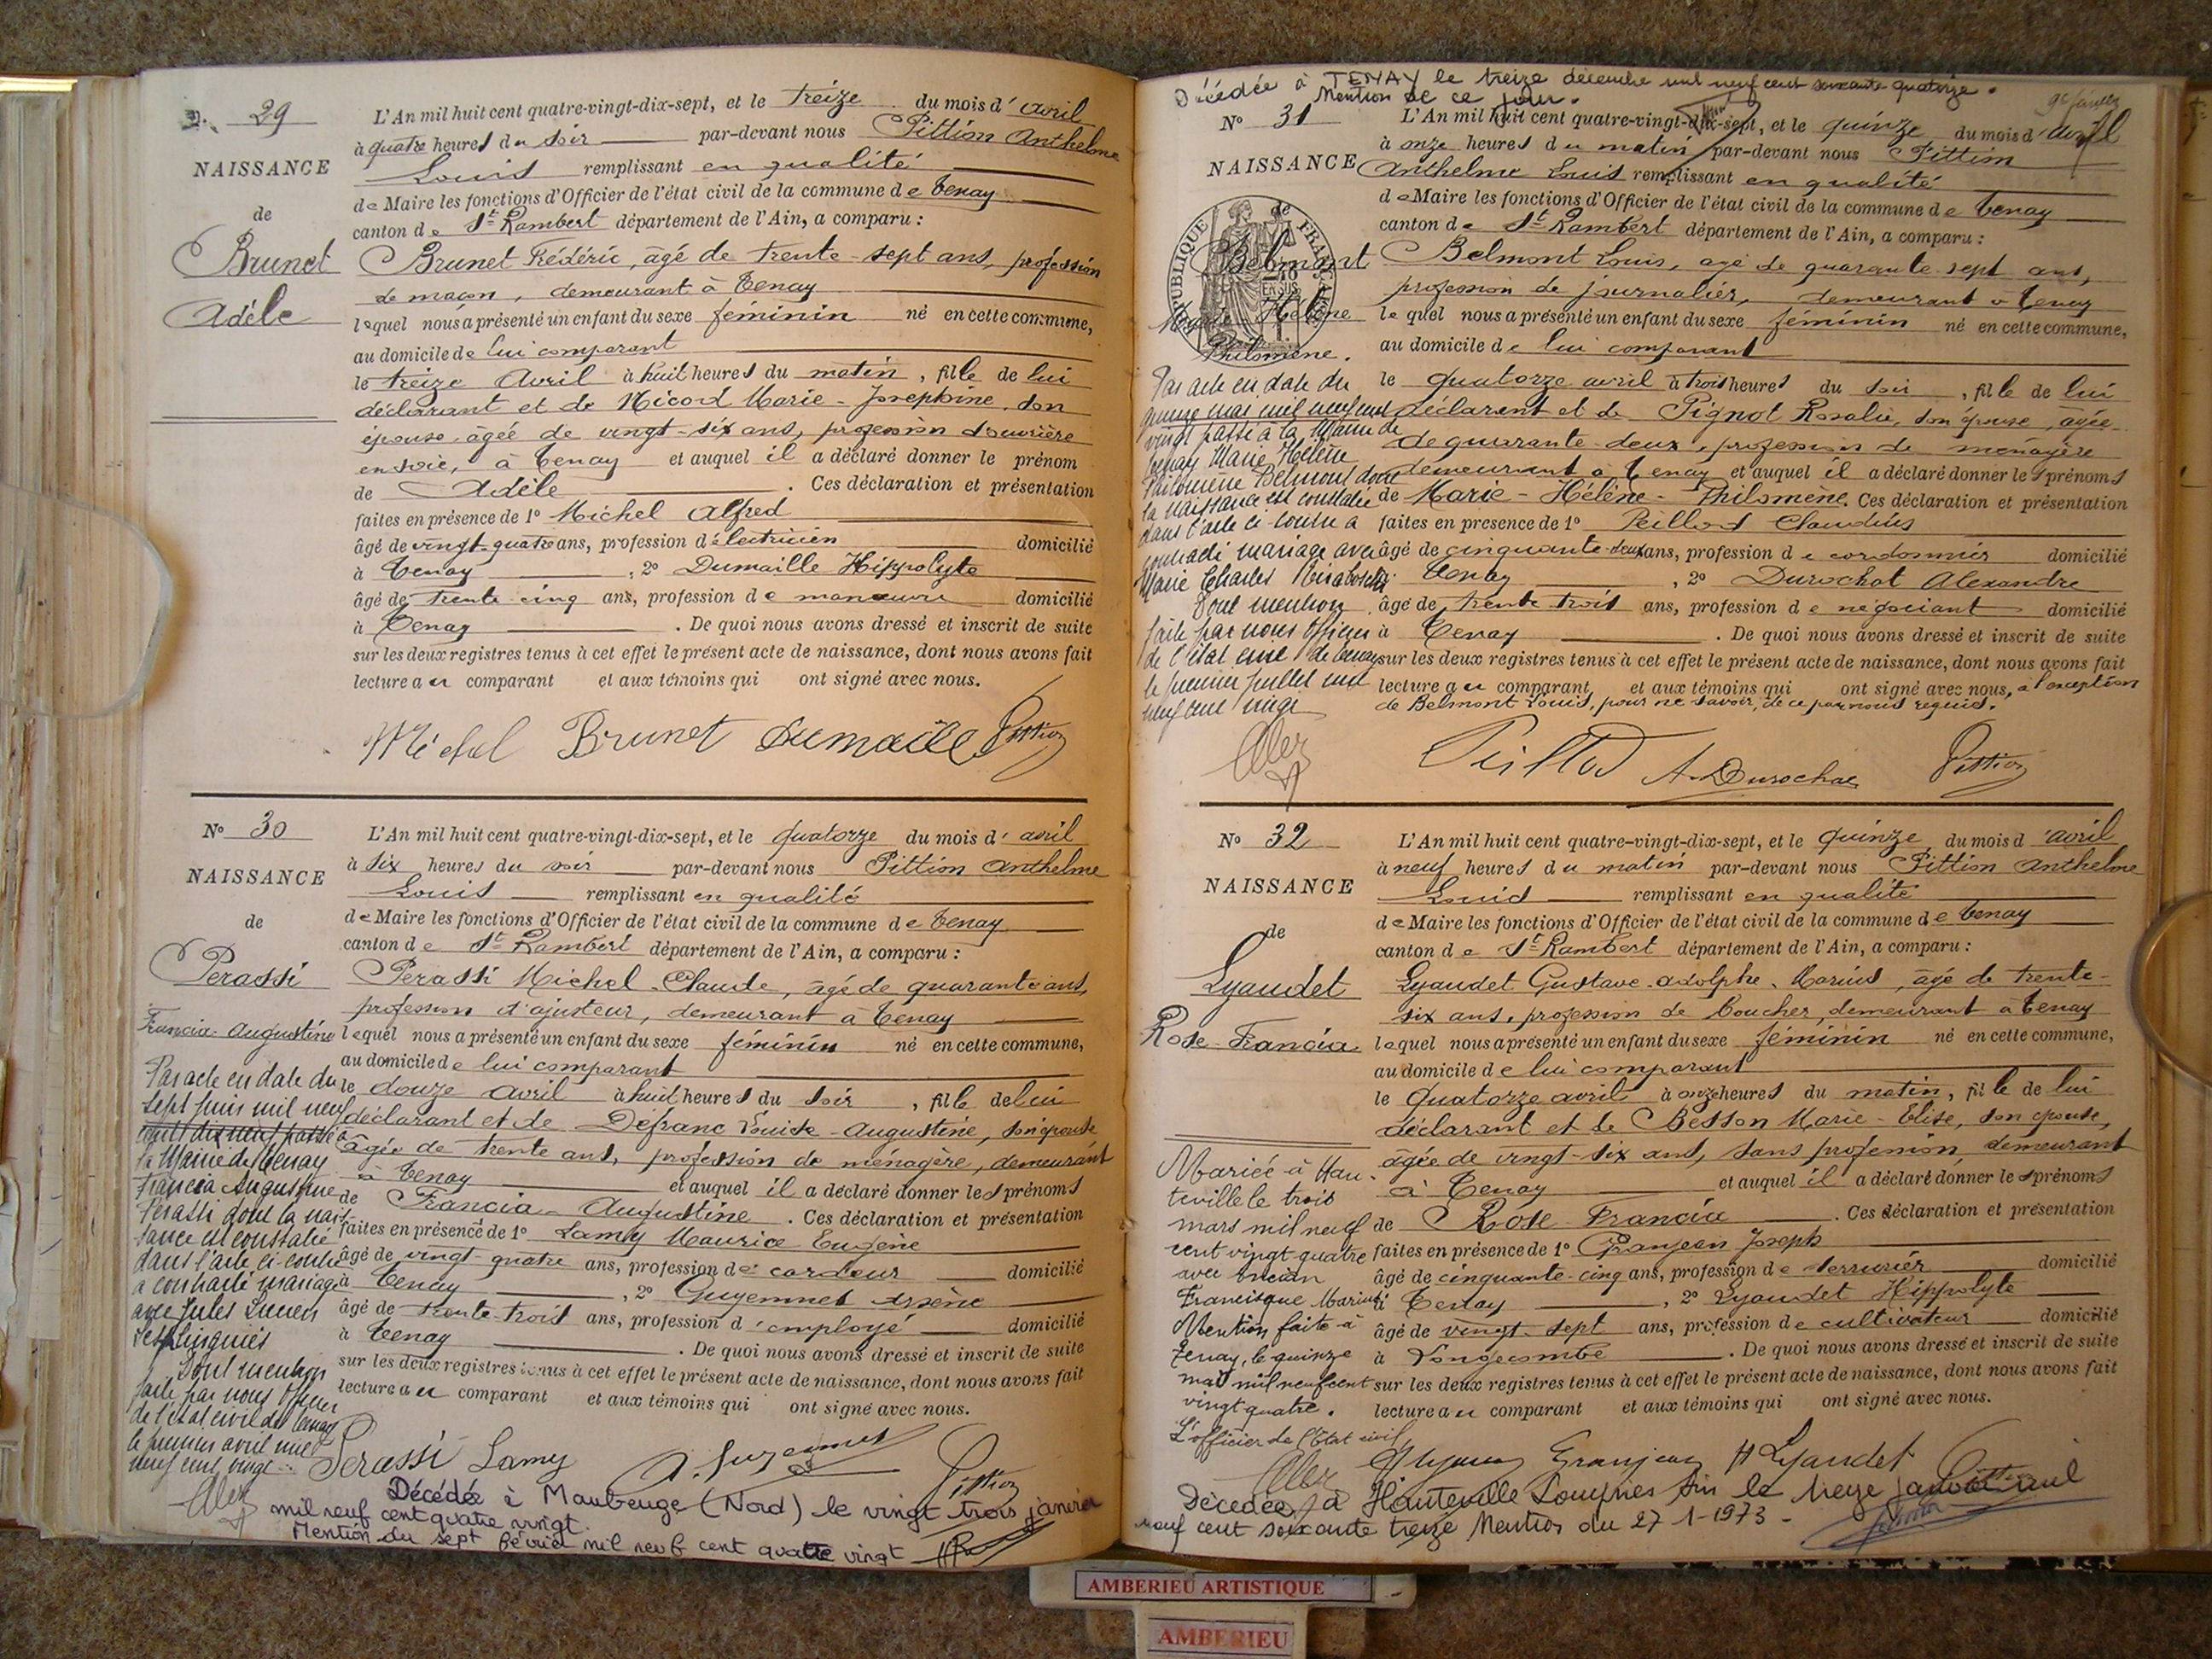 29
NAISSANCE
de
Brunet
Adèle
L'An mil huit cent quatre-vingt-dix-sept, et le treize du mois d'avril
à quatre heures du soir par-devant nous Pittion Anthelme
Louis remplissant en qualité
de Maire les fonctions d'Officier de l'état civil de la commune de Tenay
canton de St Rambert département de l'Ain, a comparu :
Brunet Frédéric, âgé de trente-sept ans, profession
de maçon, demeurant à Tenay
lequel nous a présenté un enfant du sexe féminin né en cette commune,
au domicile de lui comparant
le treize Avril à huit heures du matin, fille de lui
déclarant et de Nicod Marie-Josephine, son
épouse, âgée de vingt-six ans, profession d'ouvrière
en soie, à Tenay et auquel il a déclaré donner le prénom
de Adèle. Ces déclaration et présentation
faites en présence de 1° Michel Alfred
âgé de vingt-quatre ans, profession d'électricien domicilié
à Tenay, 2° Dumaille Hippolyte
âgé de trente cinq ans, profession de manœuvre domicilié
à Tenay. De quoi nous avons dressé et inscrit de suite
sur les deux registres tenus à cet effet le présent acte de naissance, dont nous avons fait
lecture au comparant et aux témoins qui ont signé avec nous.
Michel Brunet Dumaille Pittion
N° 30
NAISSANCE
de
Perassi
Francia-Augustine
L'An mil huit cent quatre-vingt-dix-sept, et le quatorze du mois d'avril
à six heures du soir par-devant nous Pittion Anthelme
Louis remplissant en qualité
de Maire les fonctions d'Officier de l'état civil de la commune de Tenay
canton de St Rambert département de l'Ain, a comparu :
Perassi Michel-Claude, âgé de quarante ans,
profession d'ajusteur, demeurant à Tenay
lequel nous a présenté un enfant du sexe féminin né en cette commune,
au domicile de lui comparant
le douze avril à huit heures du soir, fille de lui
déclarant et de Défranc Louise-Augustine, son épouse
âgée de trente ans, profession de ménagère, demeurant
à Tenay et auquel il a déclaré donner les prénoms
de Francia-Augustine. Ces déclaration et présentation
faites en présence de 1° Lamy Maurice Eugène
âgé de vingt-quatre ans, profession de cardeur domicilié
à Tenay, 2° Guyemmet Arsène
âgé de trente-trois ans, profession d'employé domicilié
à Tenay. De quoi nous avons dressé et inscrit de suite
sur les deux registres tenus à cet effet le présent acte de naissance, dont nous avons fait
lecture au comparant et aux témoins qui ont signé avec nous.
Par acte en date du
sept juin mil neuf
cent dix neuf passé à
la Mairie de Tenay
Francia Augustine
Perassi dont la nais-
sance est constatée
dans l'acte ci-contre
a contracté mariage
avec Jules Lucien
Dont mention
faite par nous Officier
de l'état civil de Tenay
le premier avril mil
neuf cent vingt
Perassi Lamy Pittion
Décédée à Maubeuge (Nord) le vingt trois janvier
mil neuf cent quatre vingt.
Mention du sept février mil neuf cent quatre vingt
Décédée à TENAY le treize décembre mil neuf cent soixante quatorze.
Mention de ce jour.
N° 31
NAISSANCE
Belmont
Marie Hélène
Philomène.
RÉPUBLIQUE FRANÇAISE
L'An mil huit cent quatre-vingt-dix-sept, et le quinze du mois d'avril
à onze heures du matin par-devant nous Pittion
Anthelme Louis remplissant en qualité
de Maire les fonctions d'Officier de l'état civil de la commune de Tenay
canton de St Rambert département de l'Ain, a comparu :
Belmont Louis, âgé de quarante-sept ans,
profession de journalier, demeurant à Tenay
lequel nous a présenté un enfant du sexe féminin né en cette commune,
au domicile de lui comparant
le quatorze avril à trois heures du soir, fille de lui
déclarant et de Pignot Rosalie, son épouse, âgée
de quarante-deux, profession de ménagère
demeurant à Tenay et auquel il a déclaré donner les prénoms
de Marie-Hélène-Philomène. Ces déclaration et présentation
faites en présence de 1° Peillod Claudius
âgé de cinquante-deux ans, profession de cordonnier domicilié
Tenay, 2° Durochat Alexandre
âgé de trente-trois ans, profession de négociant domicilié
à Tenay. De quoi nous avons dressé et inscrit de suite
sur les deux registres tenus à cet effet le présent acte de naissance, dont nous avons fait
lecture au comparant et aux témoins qui ont signé avec nous, à l'exception
de Belmont Louis, pour ne savoir, de ce par nous requis.
Par acte en date du
quinze mai mil neuf cent
vingt passé à la Mairie de
Tenay Marie Hélène
Philomène Belmont dont
la naissance est constatée
dans l'acte ci-contre a
contracté mariage avec
Marie Charles
Dont mention
faite par nous officier
de l'état civil de Tenay
le premier juillet mil
neuf cent vingt
Peillod A. Durochat Pittion
N° 32
NAISSANCE
de
Lyaudet
Rose-Francia
L'An mil huit cent quatre-vingt-dix-sept, et le quinze du mois d'avril
à neuf heures du matin par-devant nous Pittion Anthelme
Louis remplissant en qualité
de Maire les fonctions d'Officier de l'état civil de la commune de Tenay
canton de St Rambert département de l'Ain, a comparu :
Lyaudet Gustave-Adolphe-Marius, âgé de trente-
six ans, profession de boucher, demeurant à Tenay
lequel nous a présenté un enfant du sexe féminin né en cette commune,
au domicile de lui comparant
le quatorze avril à onze heures du matin, fille de lui
déclarant et de Besson Marie-Elise, son épouse,
âgée de vingt-six ans, sans profession, demeurant
à Tenay et auquel il a déclaré donner les prénoms
de Rose Francia. Ces déclaration et présentation
faites en présence de 1° Granjean Joseph
âgé de cinquante-cinq ans, profession de serrurier domicilié
à Tenay, 2° Lyaudet Hippolyte
âgé de vingt-sept ans, profession de cultivateur domicilié
à Longecombe. De quoi nous avons dressé et inscrit de suite
sur les deux registres tenus à cet effet le présent acte de naissance, dont nous avons fait
lecture au comparant et aux témoins qui ont signé avec nous.
Mariée à Hau-
teville le trois
mars mil neuf
cent vingt quatre
avec
Francisque Marius
Mention faite à
Tenay, le quinze
mai mil neuf cent
vingt quatre.
L'officier de l'Etat civil,
Granjean H Lyaudet
Décédée à Hauteville Lompnes Ain le treize janvier mil
neuf cent soixante treize Mention du 27 1-1973-
AMBERIEU ARTISTIQUE
AMBERIEU